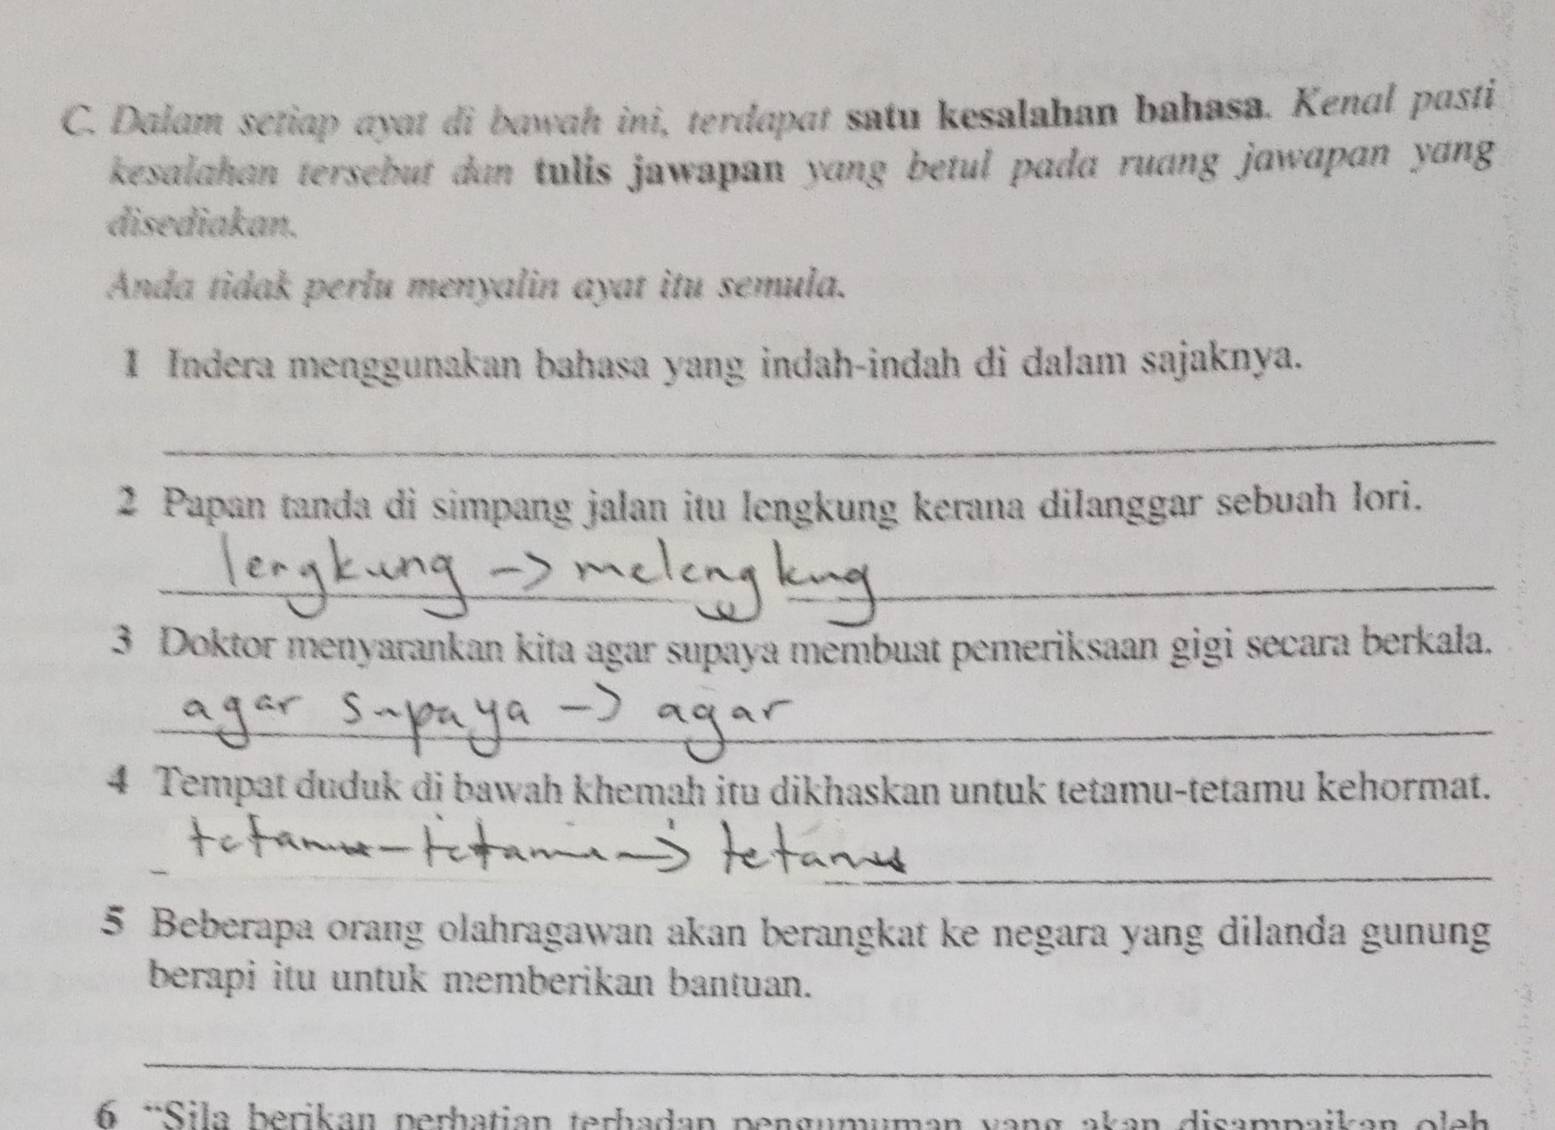 C. Dalam setiap ayat di bawah ini, terdapat satu kesalahan bahasa. Kenal pasti
kesalahan tersebut dan tulis jawapan yang betul pada ruang jawapan yang
disediakan.
Anda tidak perlu menyalin ayat itu semula.
1 Indera menggunakan bahasa yang indah-indah di dalam sajaknya.
2 Papan tanda di simpang jalan itu lengkung kerana dilanggar sebuah lori.
lengkung -> melengkung
3 Doktor menyarankan kita agar supaya membuat pemeriksaan gigi secara berkala.
agar supaya -> agar
4 Tempat duduk di bawah khemah itu dikhaskan untuk tetamu-tetamu kehormat.
tetamu-tetamu -> tetamu
5 Beberapa orang olahragawan akan berangkat ke negara yang dilanda gunung
berapi itu untuk memberikan bantuan.
6 "Sila berikan perhatian terhadap pengumuman yang akan disampaikan oleh